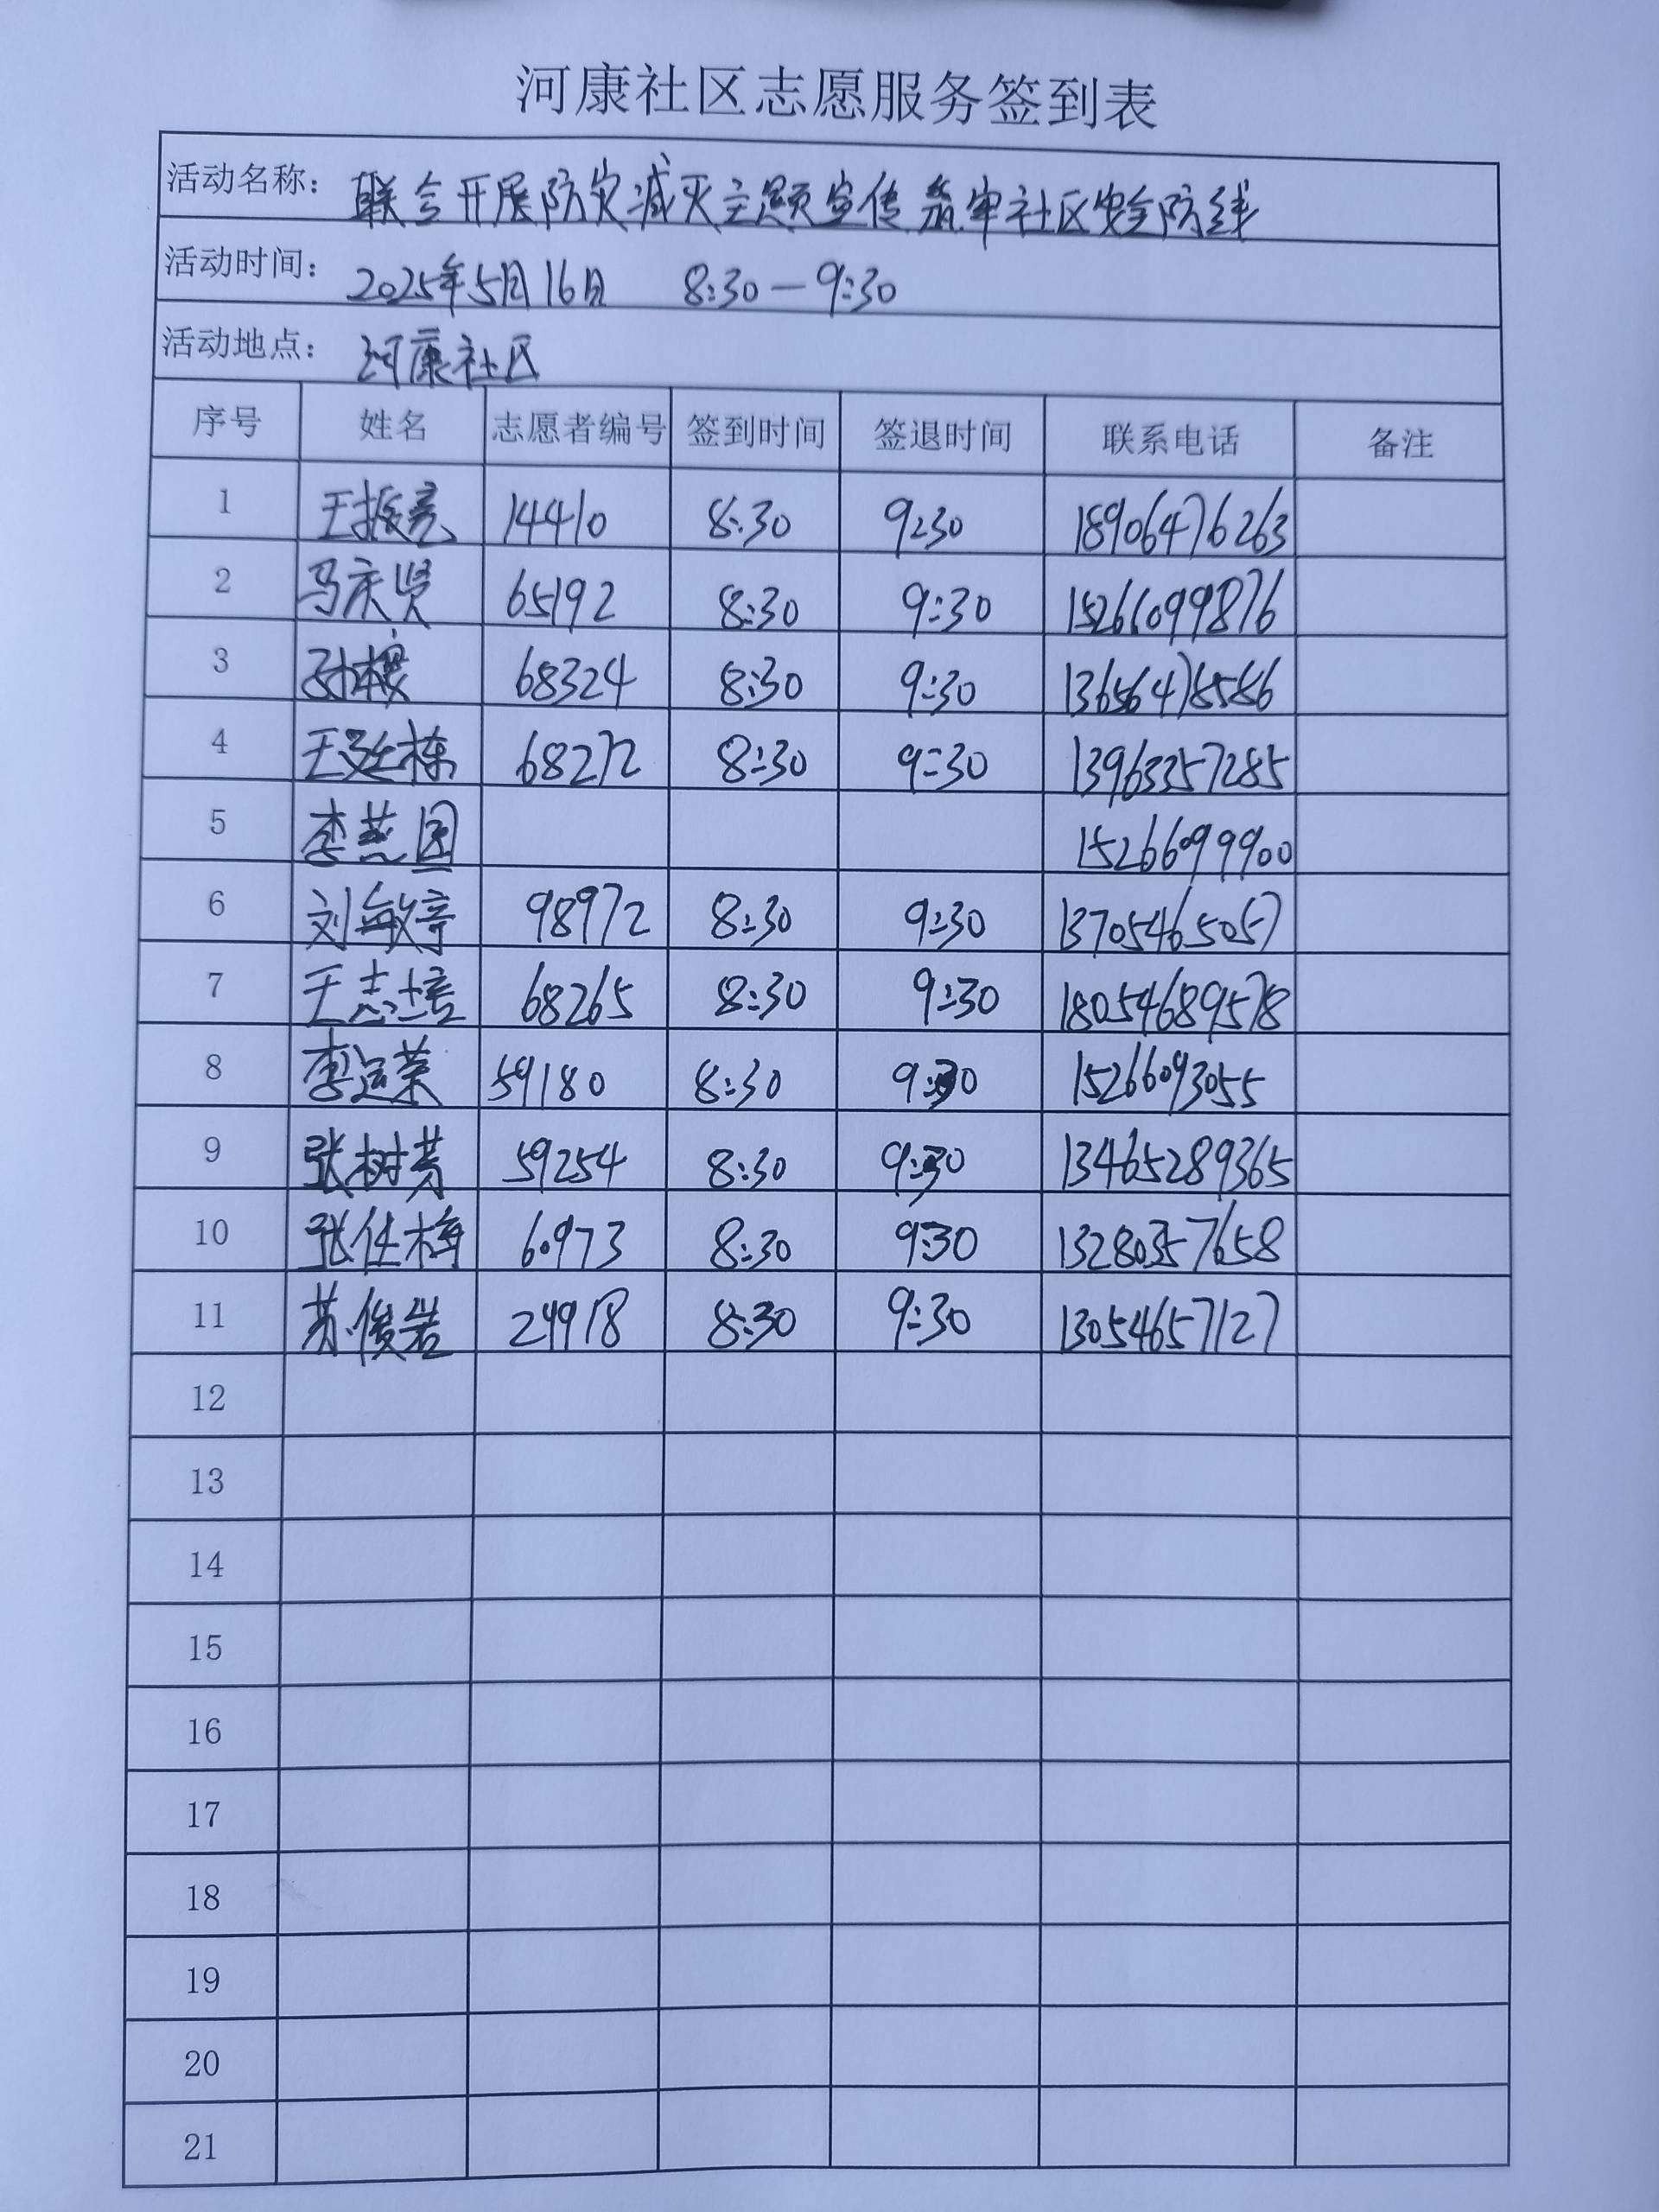 河康社区志愿服务签到表
活动名称： 联合开展防灾减灾主题宣传 筑牢社区安全防线
活动时间： 2025年5月16日 8:30—9:30
活动地点： 河康社区
序号 姓名 志愿者编号 签到时间 签退时间 联系电话 备注
1 王振亮 14410 8:30 9:30 18906476263
2 马庆贤 65192 8:30 9:30 15266099876
3 孙樱 68324 8:30 9:30 13656478586
4 王廷栋 68272 8:30 9:30 13963357285
5 李燕国 15266099900
6 刘敏婷 98972 8:30 9:30 13705465057
7 王志培 68265 8:30 9:30 18054689578
8 李运荣 59180 8:30 9:30 15266093055
9 张树芳 59254 8:30 9:30 13465289365
10 张任梅 60973 8:30 9:30 13280357658
11 苏俊岩 24918 8:30 9:30 13054657127
12
13
14
15
16
17
18
19
20
21